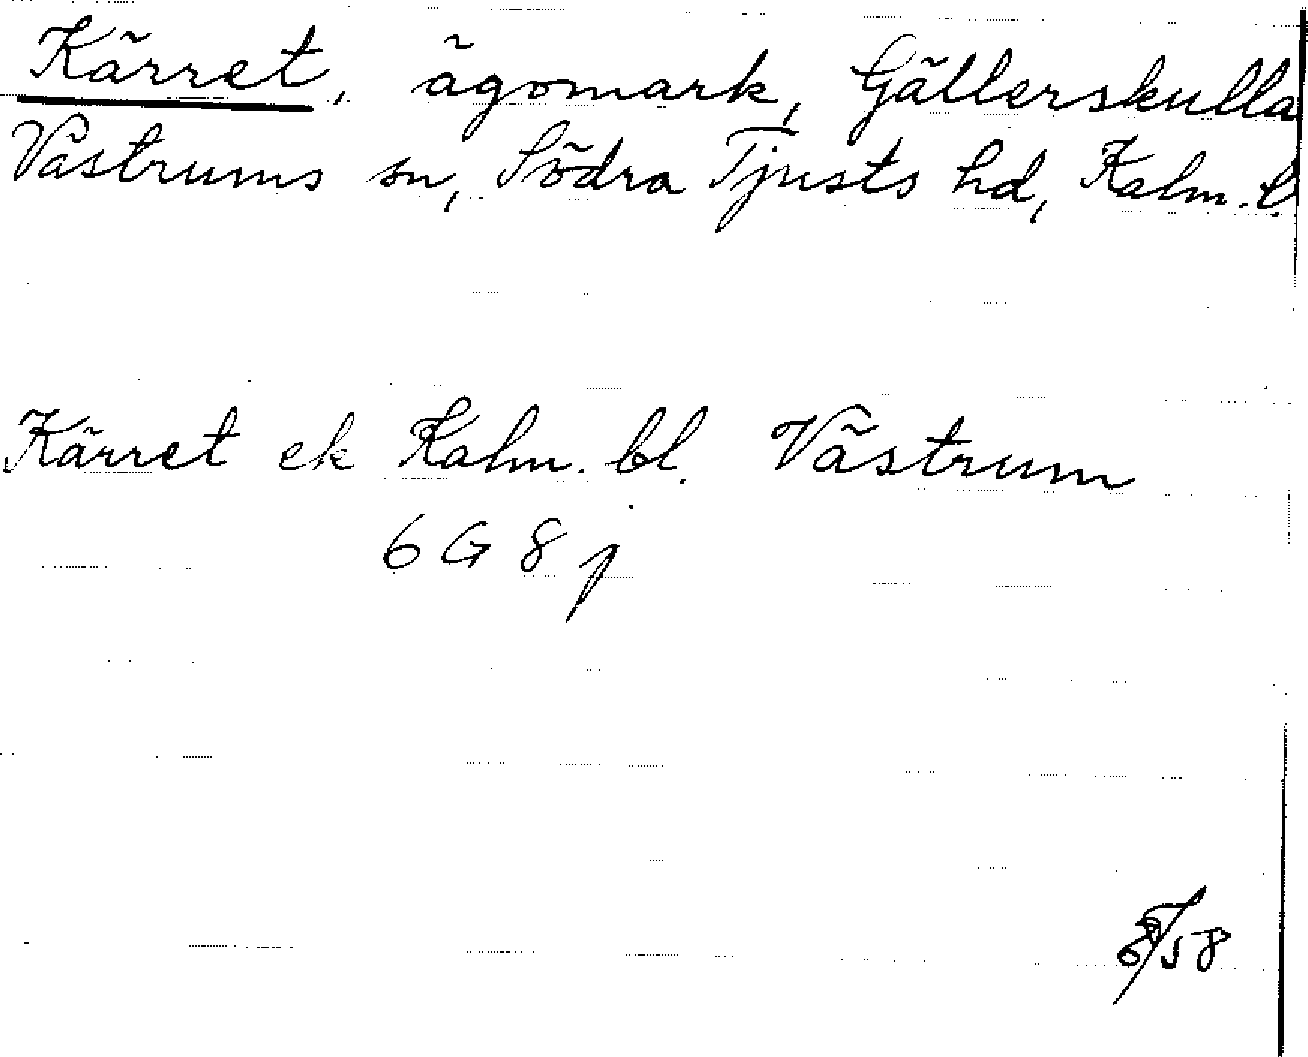 Kärret, ägomark, Gällerskulla
Västrums sn, Södra Tjusts hd, Kalm. l.
Kärret ek Kalm. bl. Västrum
6 G 8 j